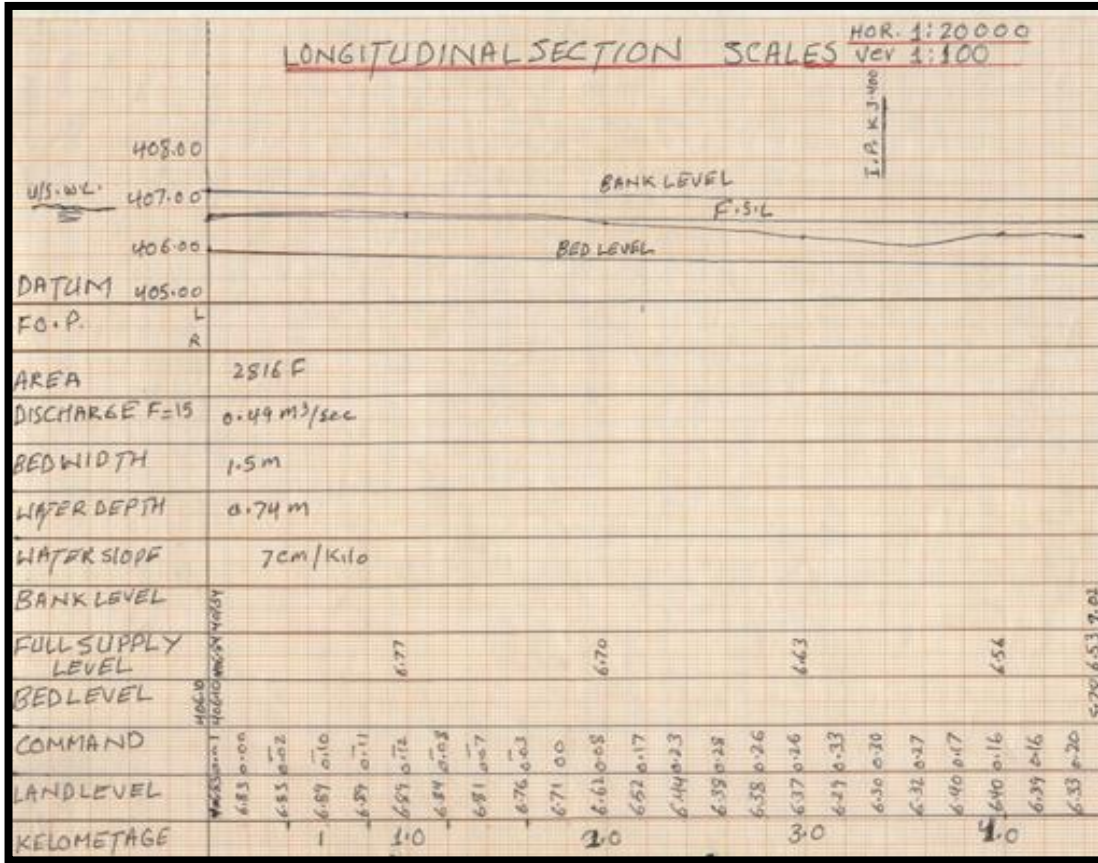 LONGITUDINAL SECTION SCALES HOR. 1:20000
Ver 1:100
I.P. K 3.400
408.00
U/S.W.L. 407.00
BANK LEVEL
F.S.L
406.00
BED LEVEL
DATUM 405.00
FO.P. L
R
AREA 2816 F
DISCHARGE F=15 0.49 m3/sec
BED WIDTH 1.5m
WATER DEPTH 0.74 m
WATER SLOPE 7cm/Kilo
BANK LEVEL 7.02
FULL SUPPLY
LEVEL 406.84 6.77 6.70 6.63 6.56 6.53
BED LEVEL 406.10 406.10
COMMAND 0.00 0.02 0.10 0.11 0.12 0.08 0.07 0.03 00 0.08 0.17 0.23 0.28 0.26 0.26 0.33 0.30 0.27 0.17 0.16 0.16 0.20
LAND LEVEL 6.83 6.85 6.89 6.89 6.89 6.84 6.81 6.76 6.71 6.62 6.52 6.44 6.38 6.38 6.37 6.29 6.30 6.32 6.40 6.40 6.39 6.33
KELOMETAGE 1 1.0 2.0 3.0 4.0